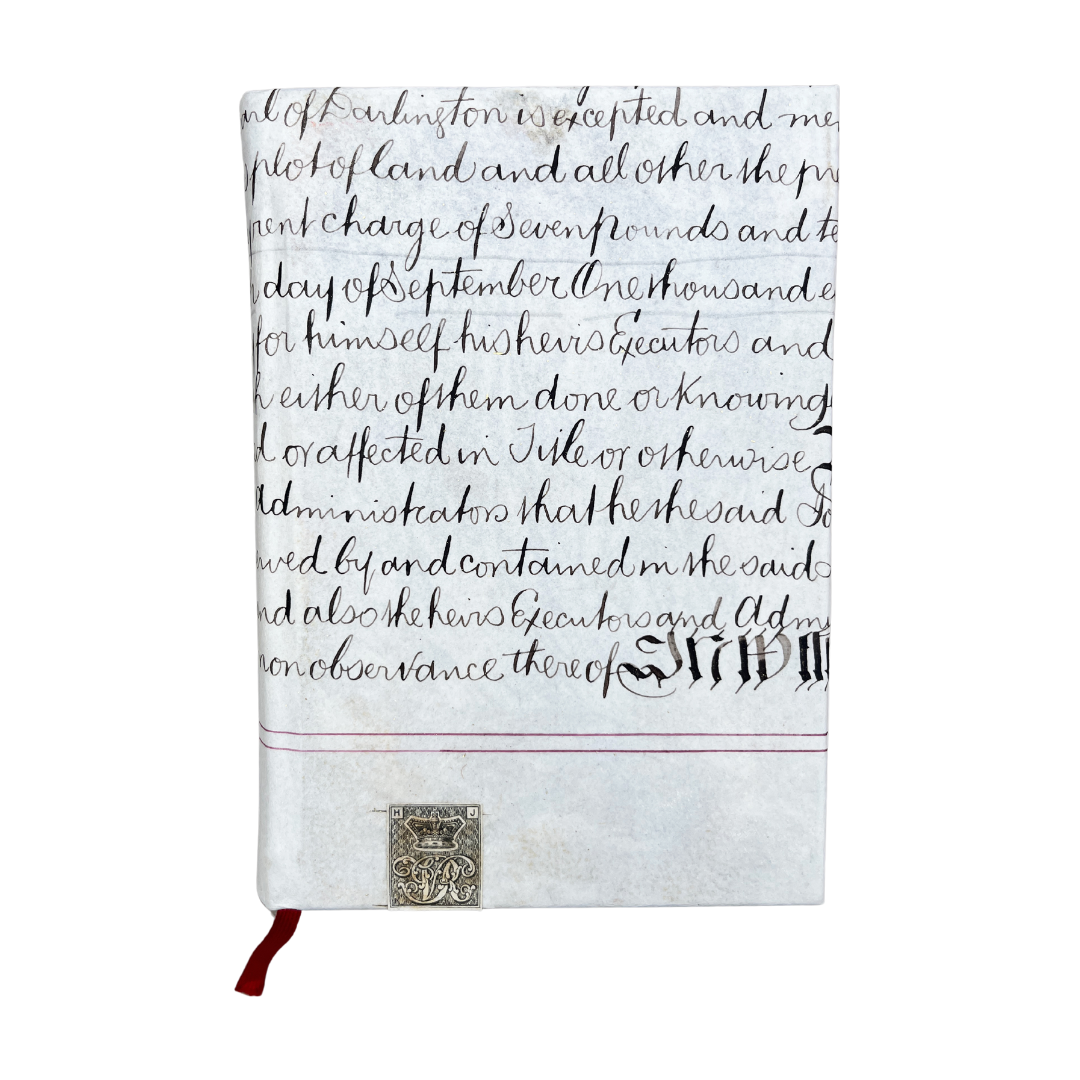 arl of Darlington is excepted and me
plot of land and all other the pre
rent charge of Seven pounds and te
day of September One thousand e
for himself his heirs Executors and
h either of them done or knowing
d or affected in Title or otherwise
Administrators that he the said
ved by and contained in the said
nd also the heirs Executors and Admi
non observance thereof In W
H J
VR